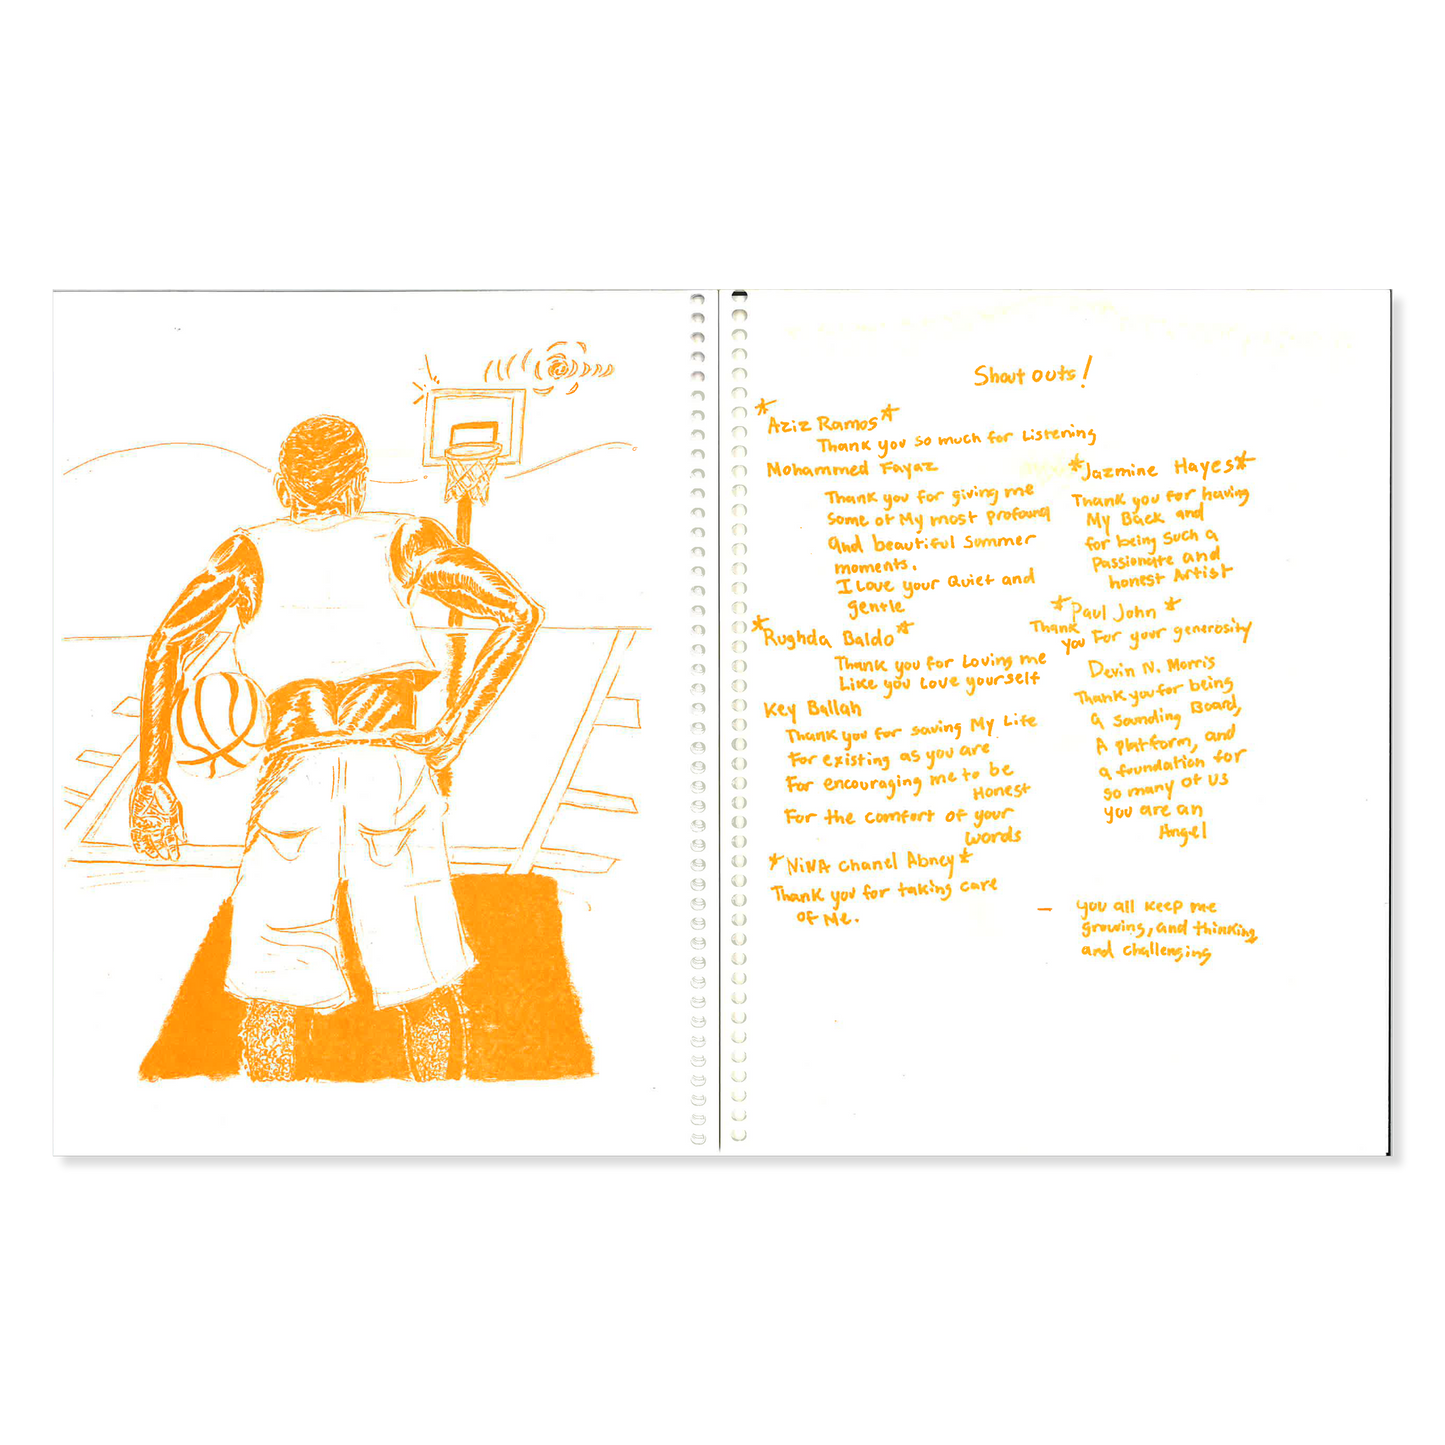 Shout outs!
*Aziz Ramos*
Thank you so much for Listening
Mohammed Fayaz
Thank you for giving me
some of My most profound
and beautiful summer
moments.
I Love your Quiet and
gentle
*Rughda Baldo*
Thank you for Loving me
Like you Love yourself
Key Ballah
Thank you for saving My Life
For existing as you are
For encouraging me to be
Honest
For the comfort of your
words
*NiNA Chanel Abney*
Thank you for taking care
of Me.
*Jazmine Hayes*
Thank you for having
My Back and
for being such a
Passionate and
honest Artist
*Paul John*
Thank
you For your generosity
Devin N. Morris
Thank you for being
a sounding Board,
A platform, and
a foundation for
so many of us
you are an
Angel
— you all keep me
growing, and thinking
and challenging